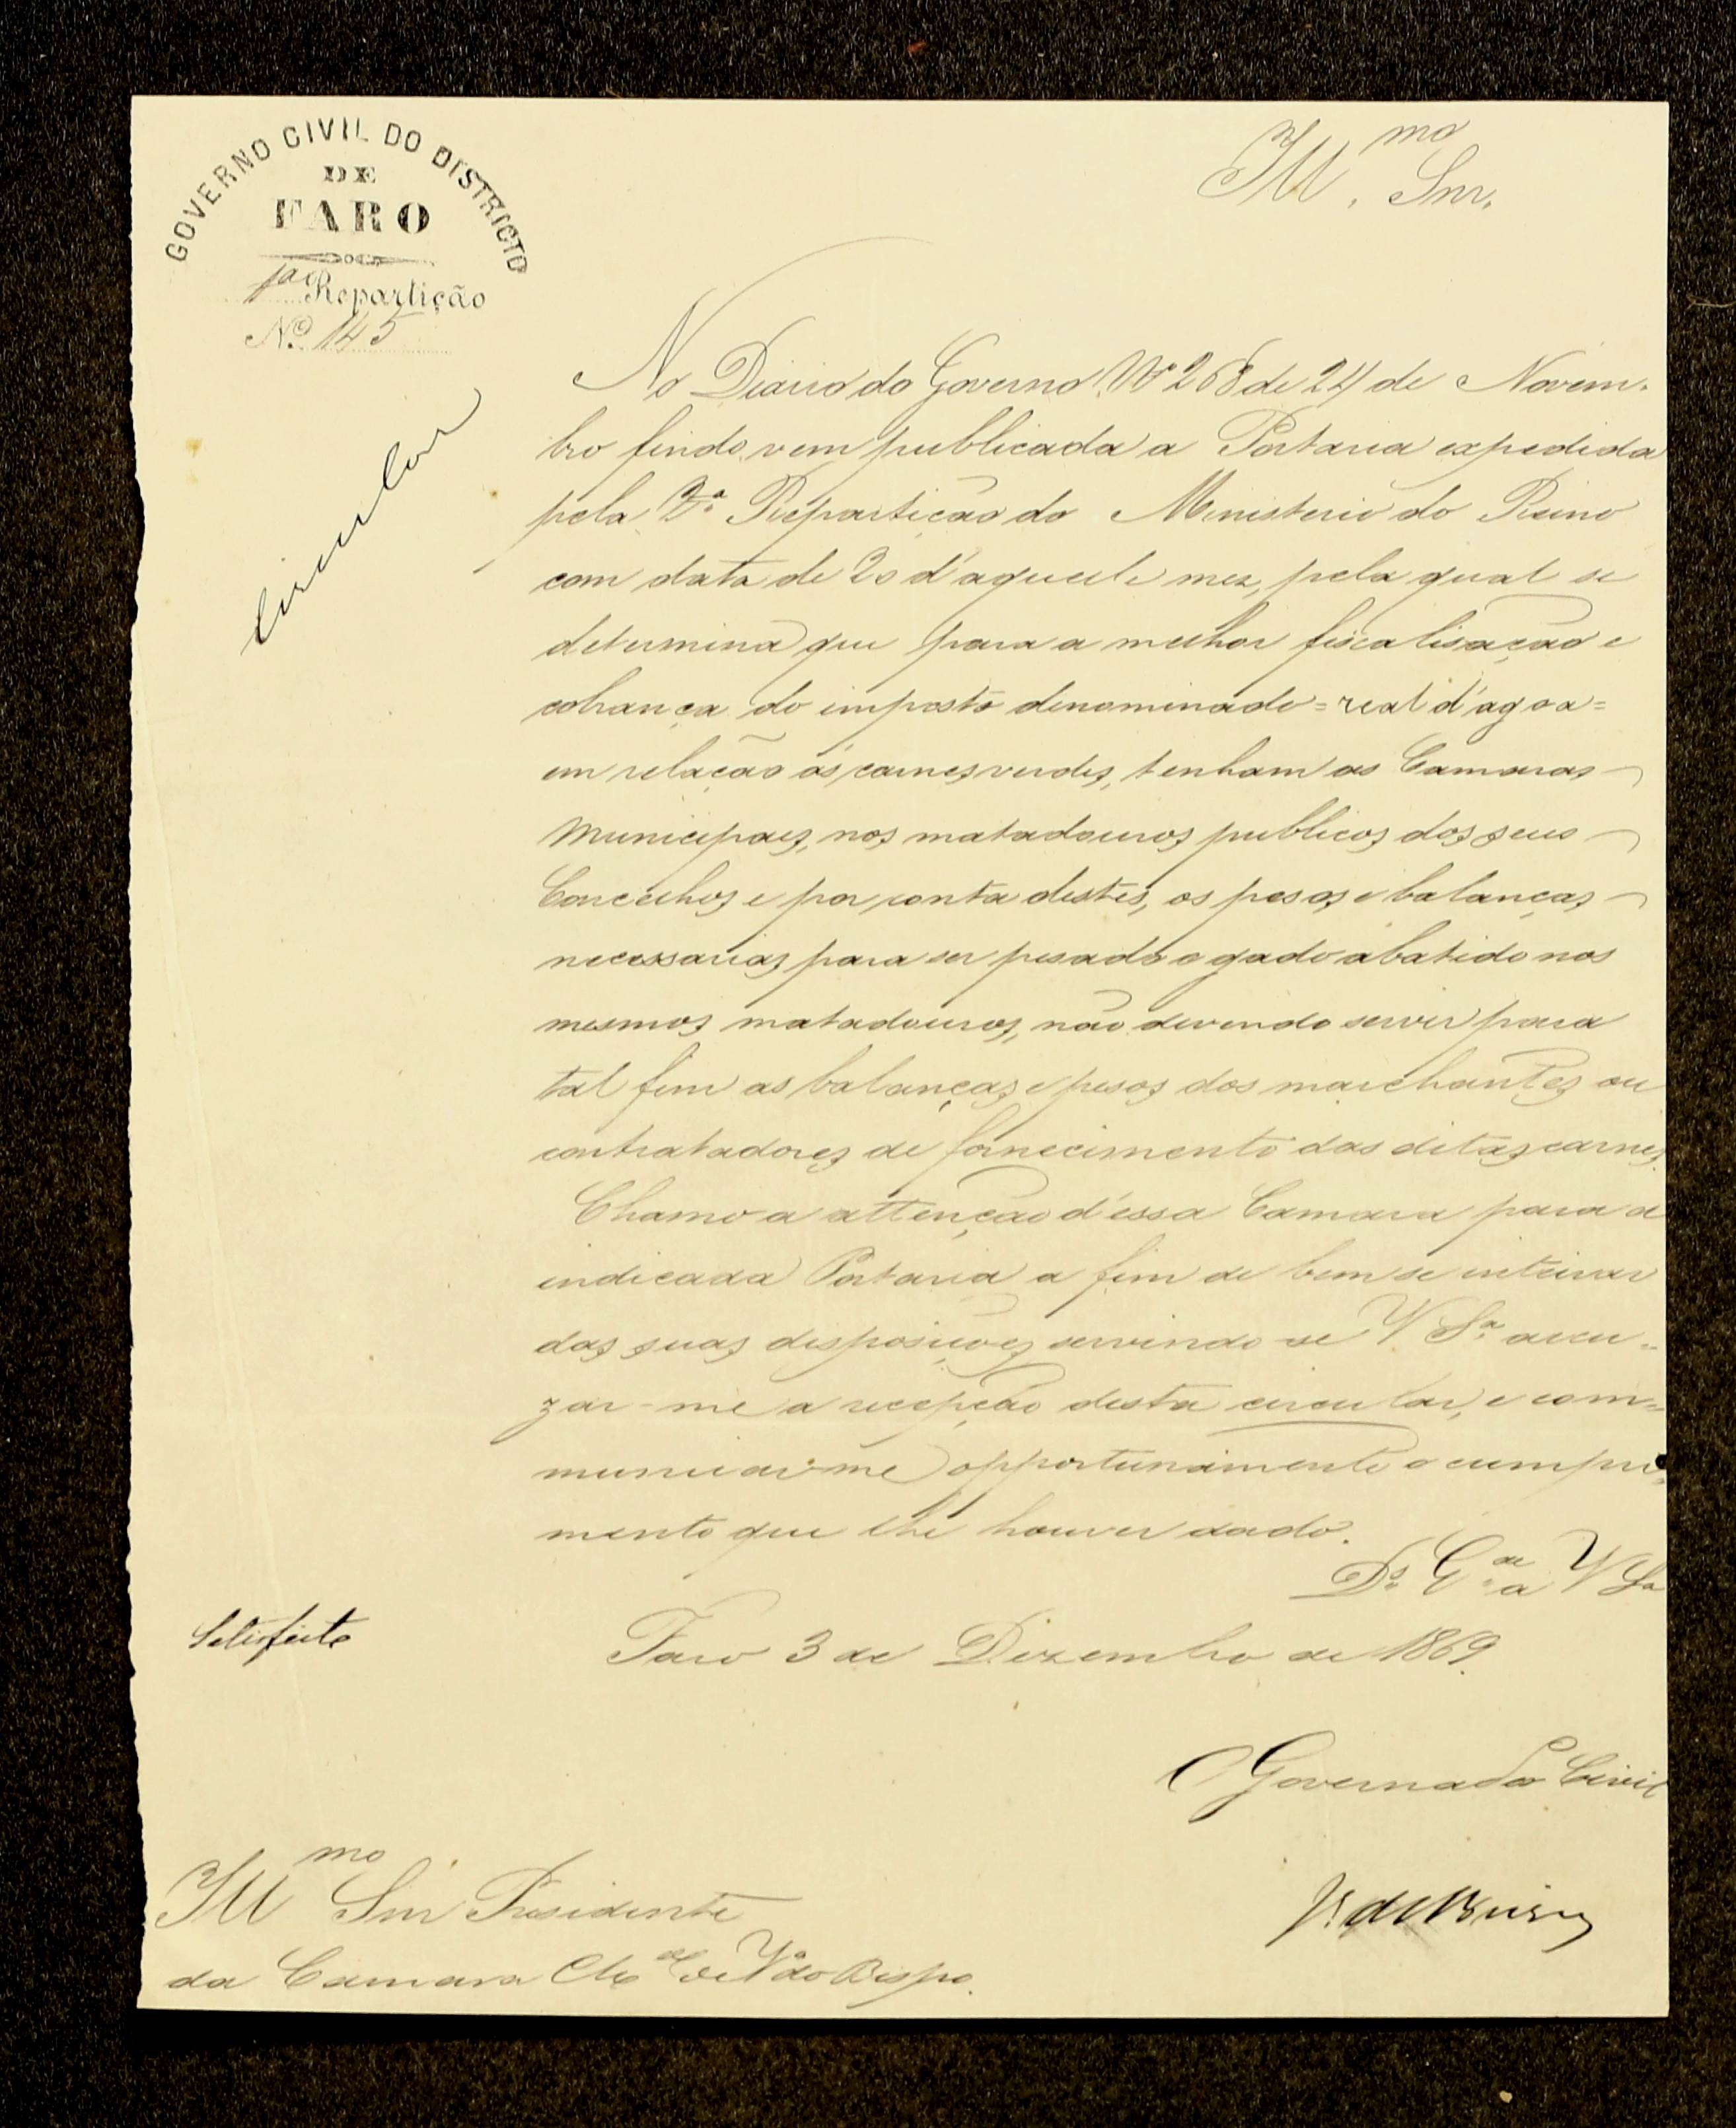 GOVERNO CIVIL DO DISTRICTO
DE
FARO
1ª Repartição
Nº 145
Illmo. Snr.
Circular
No Diario do Governo Nº 268 de 24 de Novem-
bro findo vem publicada a Portaria expedida
pela 3ª Repartição do Ministerio do Reino
com data de 20 d'aquelle mez, pela qual se
determina que para a melhor fiscalisação e
cobrança do imposto denominado = real d'agoa =
em relação ás carnes verdes, tenham as Camaras
Municipaes, nos matadouros publicos dos seus
Concelhos e por conta destes, os pesos e balanças
necessarias para ser pesado o gado abatido nos
mesmos matadouros, não devendo servir para
tal fim as balanças e pesos dos marchantes ou
contratadores de fornecimento das ditas carnes.
Chamo a attenção d'essa Camara para a
indicada Portaria a fim de bem se inteirar
das suas disposições servindo-se V Sª accu-
zar-me a recepção desta circular, e com-
municar-me opportunamente o cumpri-
mento que lhe houver dado.
Ds. Gde a V Sa
Satisfeito
Faro 3 de Dezembro de 1869.
O Governador Civil
Illmo Snr Presidente
da Camara Mal de Vª do Bispo.